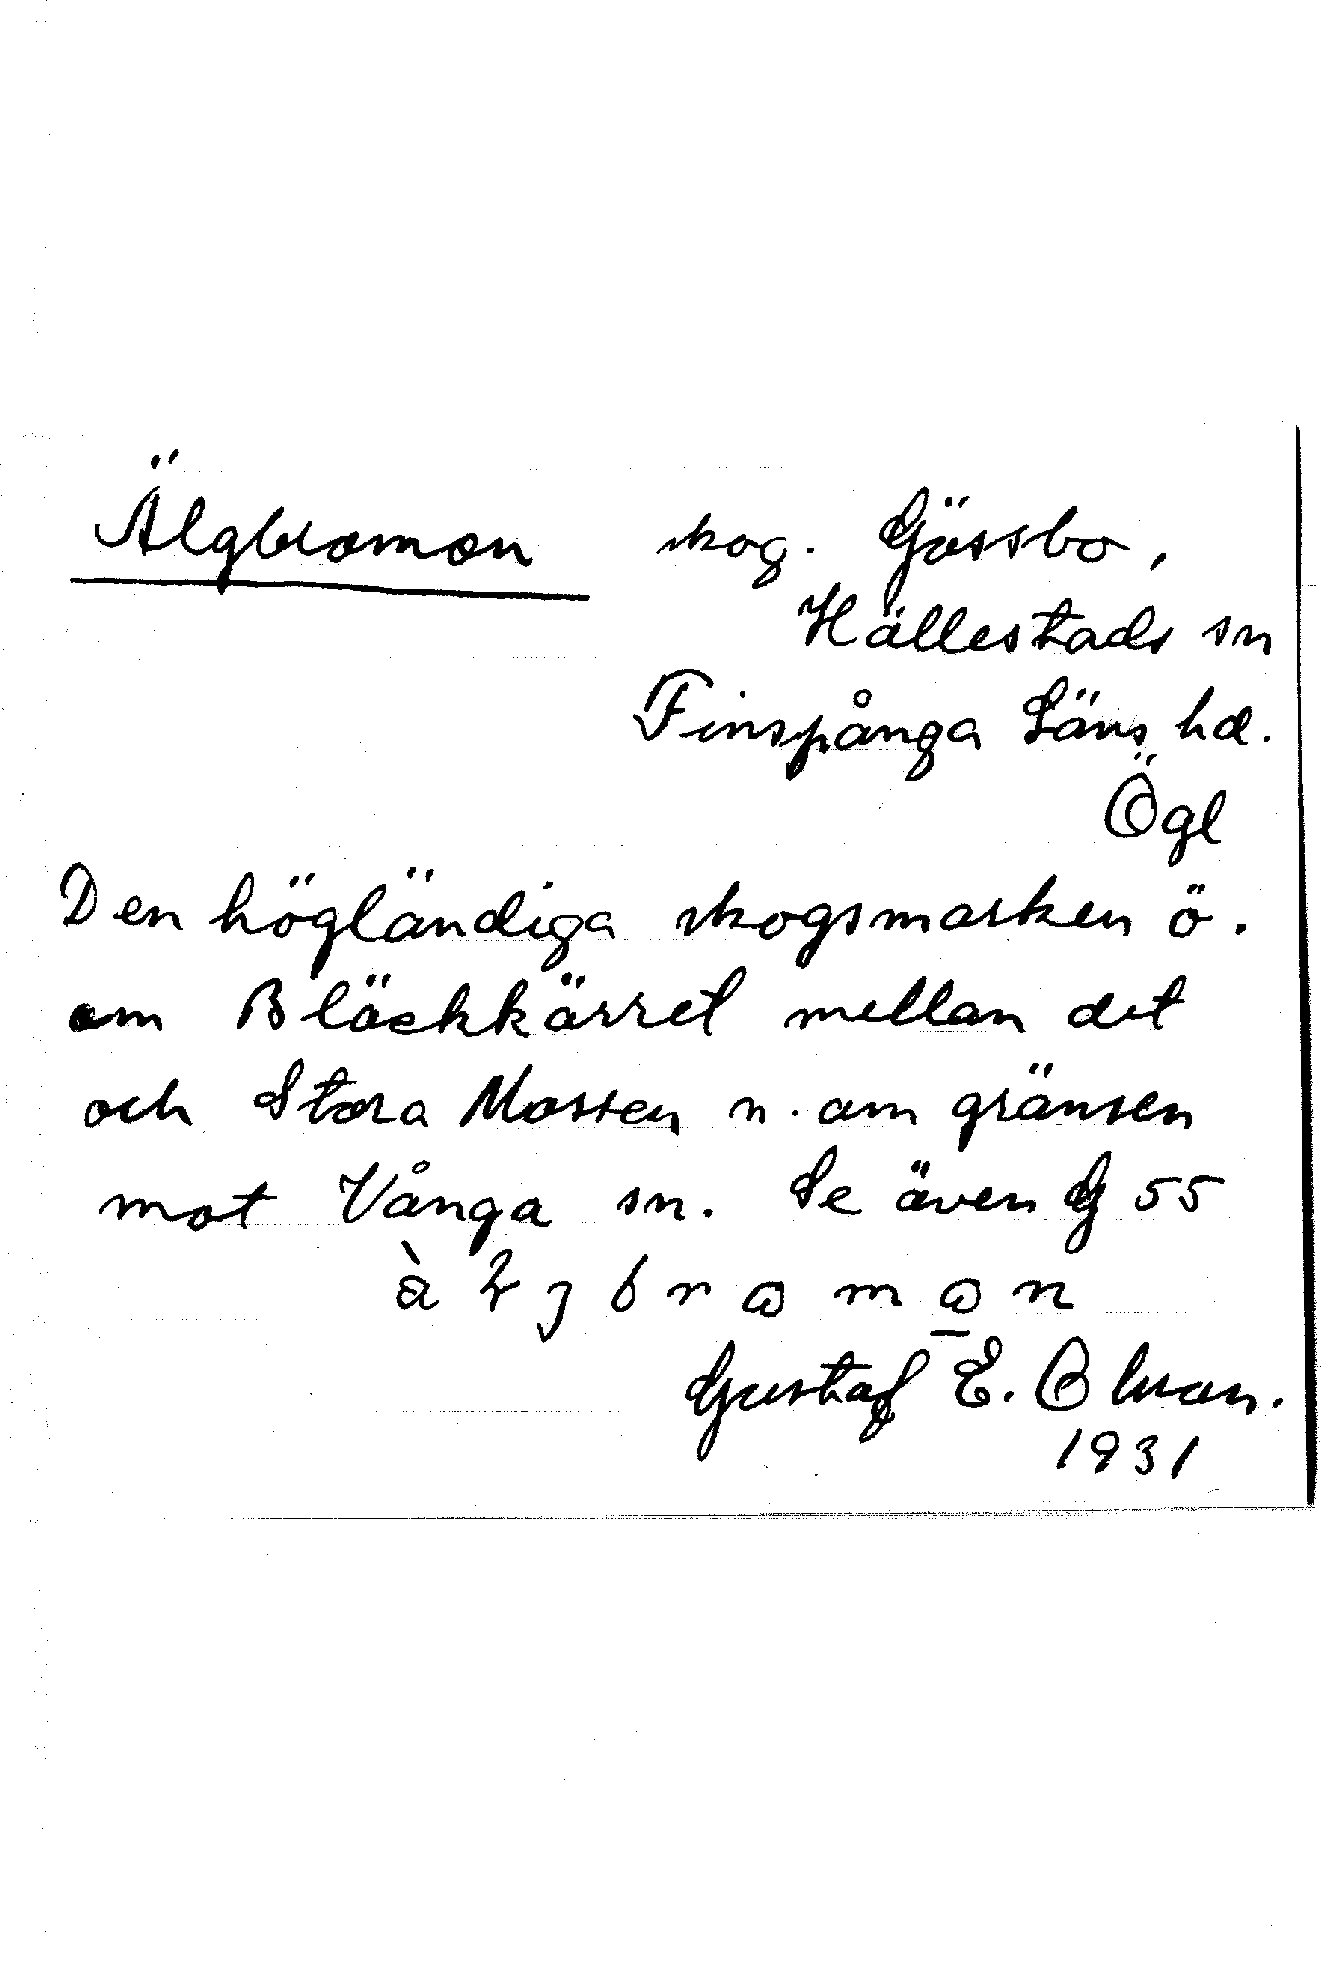 Älgbromon skog. Gössbo,
Hällestads sn
Finspånga Läns hd.
Ögl
Den högländiga skogsmarken ö.
om Bläckkärret mellan det
och Stora Mossen n. om gränsen
mot Vånga sn. Se även G 55
Gustaf E. Olson.
1931